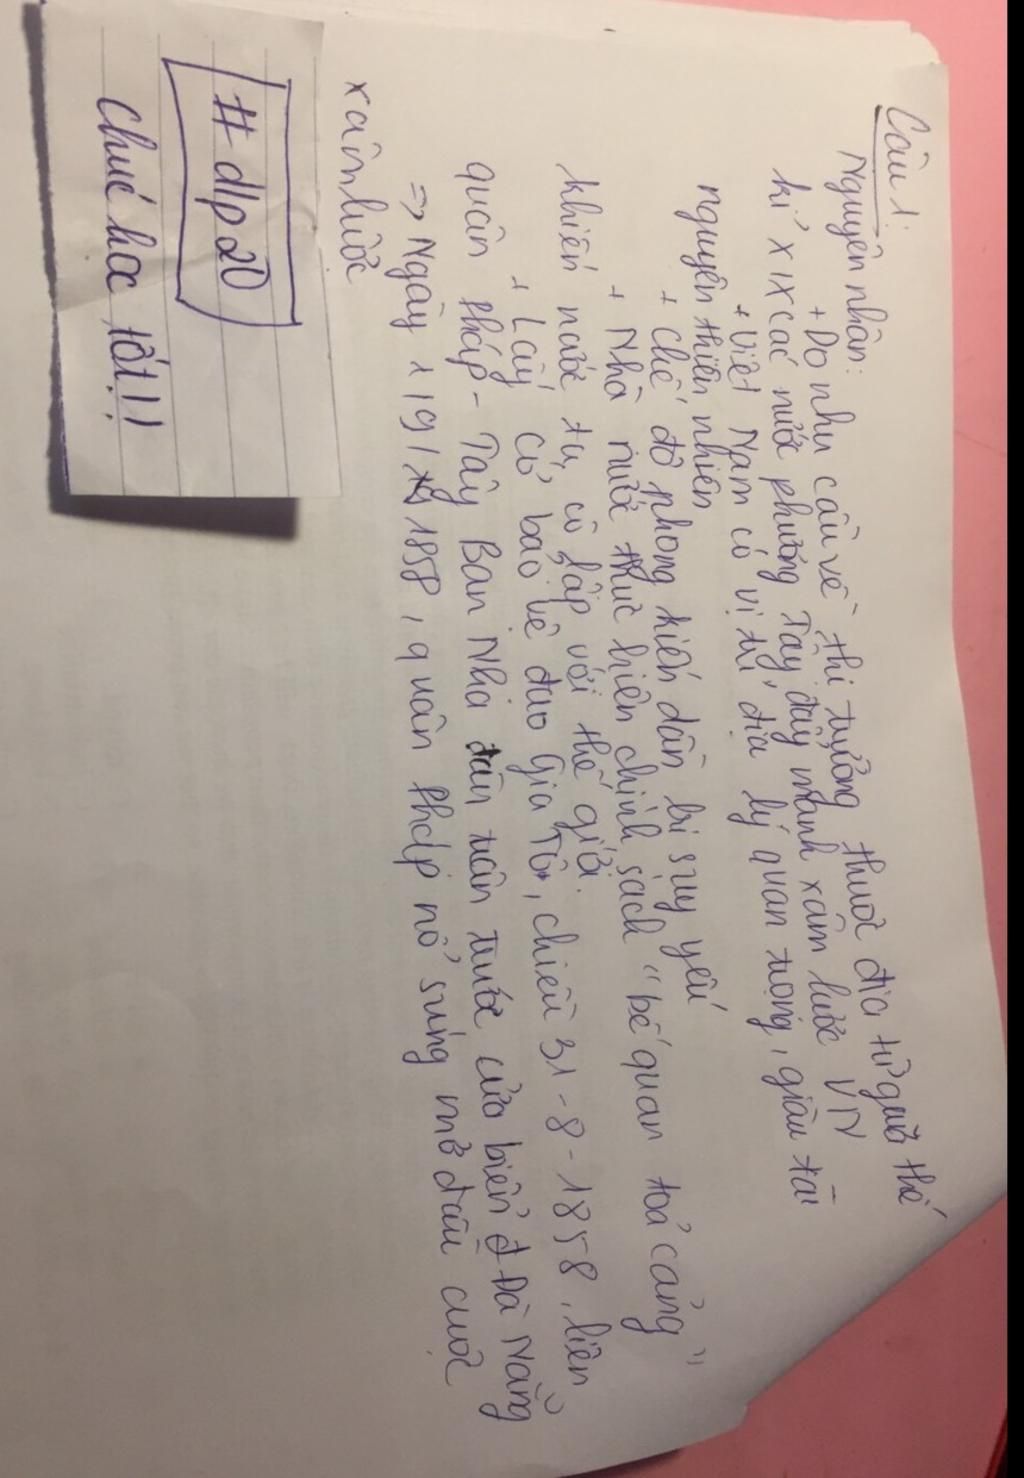 Câu 1:
Nguyên nhân:
+ Do nhu cầu về thị trường thuộc địa từ giữa thế
kỉ XIX các nước phương Tây đẩy mạnh xâm lược VN
+ Việt Nam có vị trí địa lý quan trọng, giàu tài
nguyên thiên nhiên
+ chế độ phong kiến dần bị suy yếu
+ Nhà nước thực hiện chính sách "bế quan toả cảng"
khiến nước ta cô lập với thế giới.
+ Lấy cớ bảo vệ đạo Gia Tô, chiều 31-8-1858, liên
quân Pháp - Tây Ban Nha dàn trận trước cửa biển Đà Nẵng
=> Ngày 1/9/1858, quân Pháp nổ súng mở đầu cuộc
xâm lược
# dlp20
Chúc học tốt!!